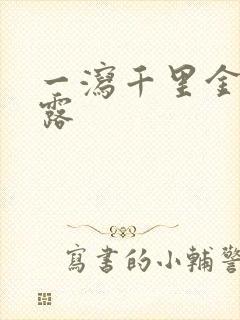 一瀉千里金
露
寫書的小輔警